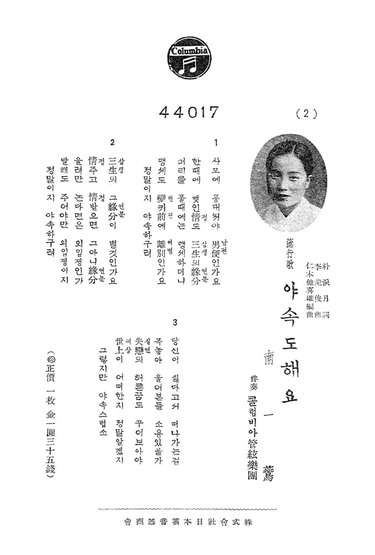 Columbia
44017
(2)
李龍俊曲
仁木他喜雄編曲
流行歌
야속도해요
南一鶯
伴奏 콜럼비아管絃樂團
1
사모에 男便인가요
한때에 맺인情도 三生의緣分
머리를 풀때에는 맹세하더니
맹세도 離別인가요
정말이지 야속하구려
2
三生의 그緣分이 별것인가요
情주고 情받으면 그아니緣分
울려만 논다면은 외입쟁인가
달래도 주어야만 외입쟁이지
정말이지 야속하구려
3
당신이 싫다고서 떠나가는걸
목놓아 울어본들 소용있을가
失戀의 꾸어보아야
世上이 어떠한지 정말알겠지
그렇지만 야속스럽소
正價 一枚 金一圓三十五錢
會商器音蓄本日社會式株